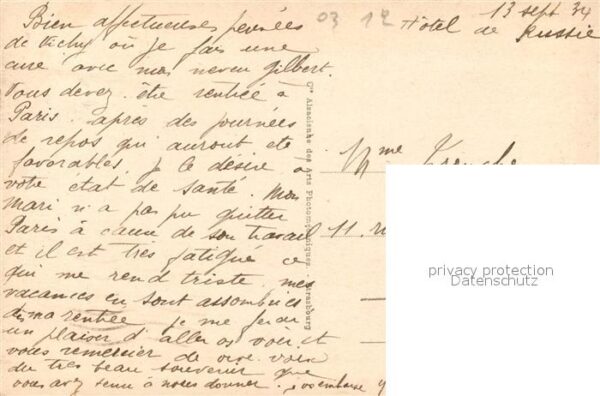 13 sept 34
Hotel de Russie
03 12
Bien affectueuses pensées
de Vichy où je fais une
cure avec mon neveu Gilbert.
Vous devez être rentrée à
Paris après des journées
de repos qui auront été
favorables, je le désire, à
votre état de santé. Mon
mari n'a pas pu quitter
Paris à cause de son travail
et il est très fatigué ce
qui me rend triste, mes
vacances en sont assombries
dès ma rentrée je me ferai
un plaisir d'aller vous voir et
vous remercier de vive voix
du très beau souvenir que
vous avez tenu à nous donner.
Cie Alsacienne des Arts Photomécaniques, Strasbourg
Mme
11. ru
privacy protection
Datenschutz